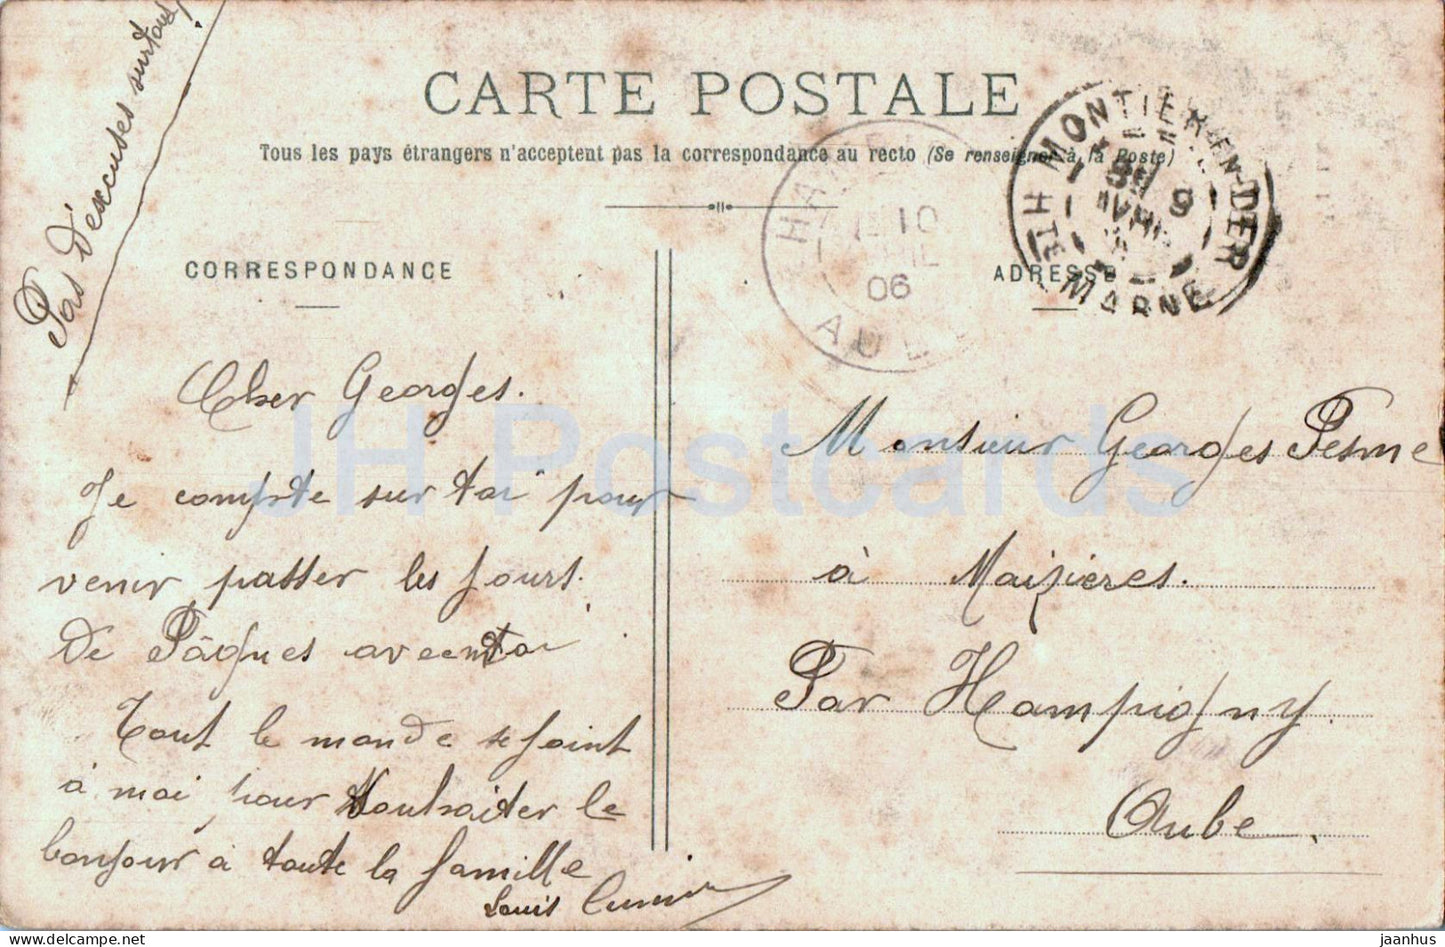 Pas d'excuses surtout
CARTE POSTALE
Tous les pays étrangers n'acceptent pas la correspondance au recto (Se renseigner à la Poste)
CORRESPONDANCE
ADRESSE
MONTIER-EN-DER
HTE MARNE
10
06
Cher Georges.
Je compte sur toi pour
venir passer les jours.
De Pâques avec toi
Tout le monde se joint
à moi pour souhaiter le
bonjour à toute la famille
Louis
Monsieur Georges Pesme
à Maizieres.
Par Hampigny.
Aube.
JH Postcards
hipstamp.com
jaanhus